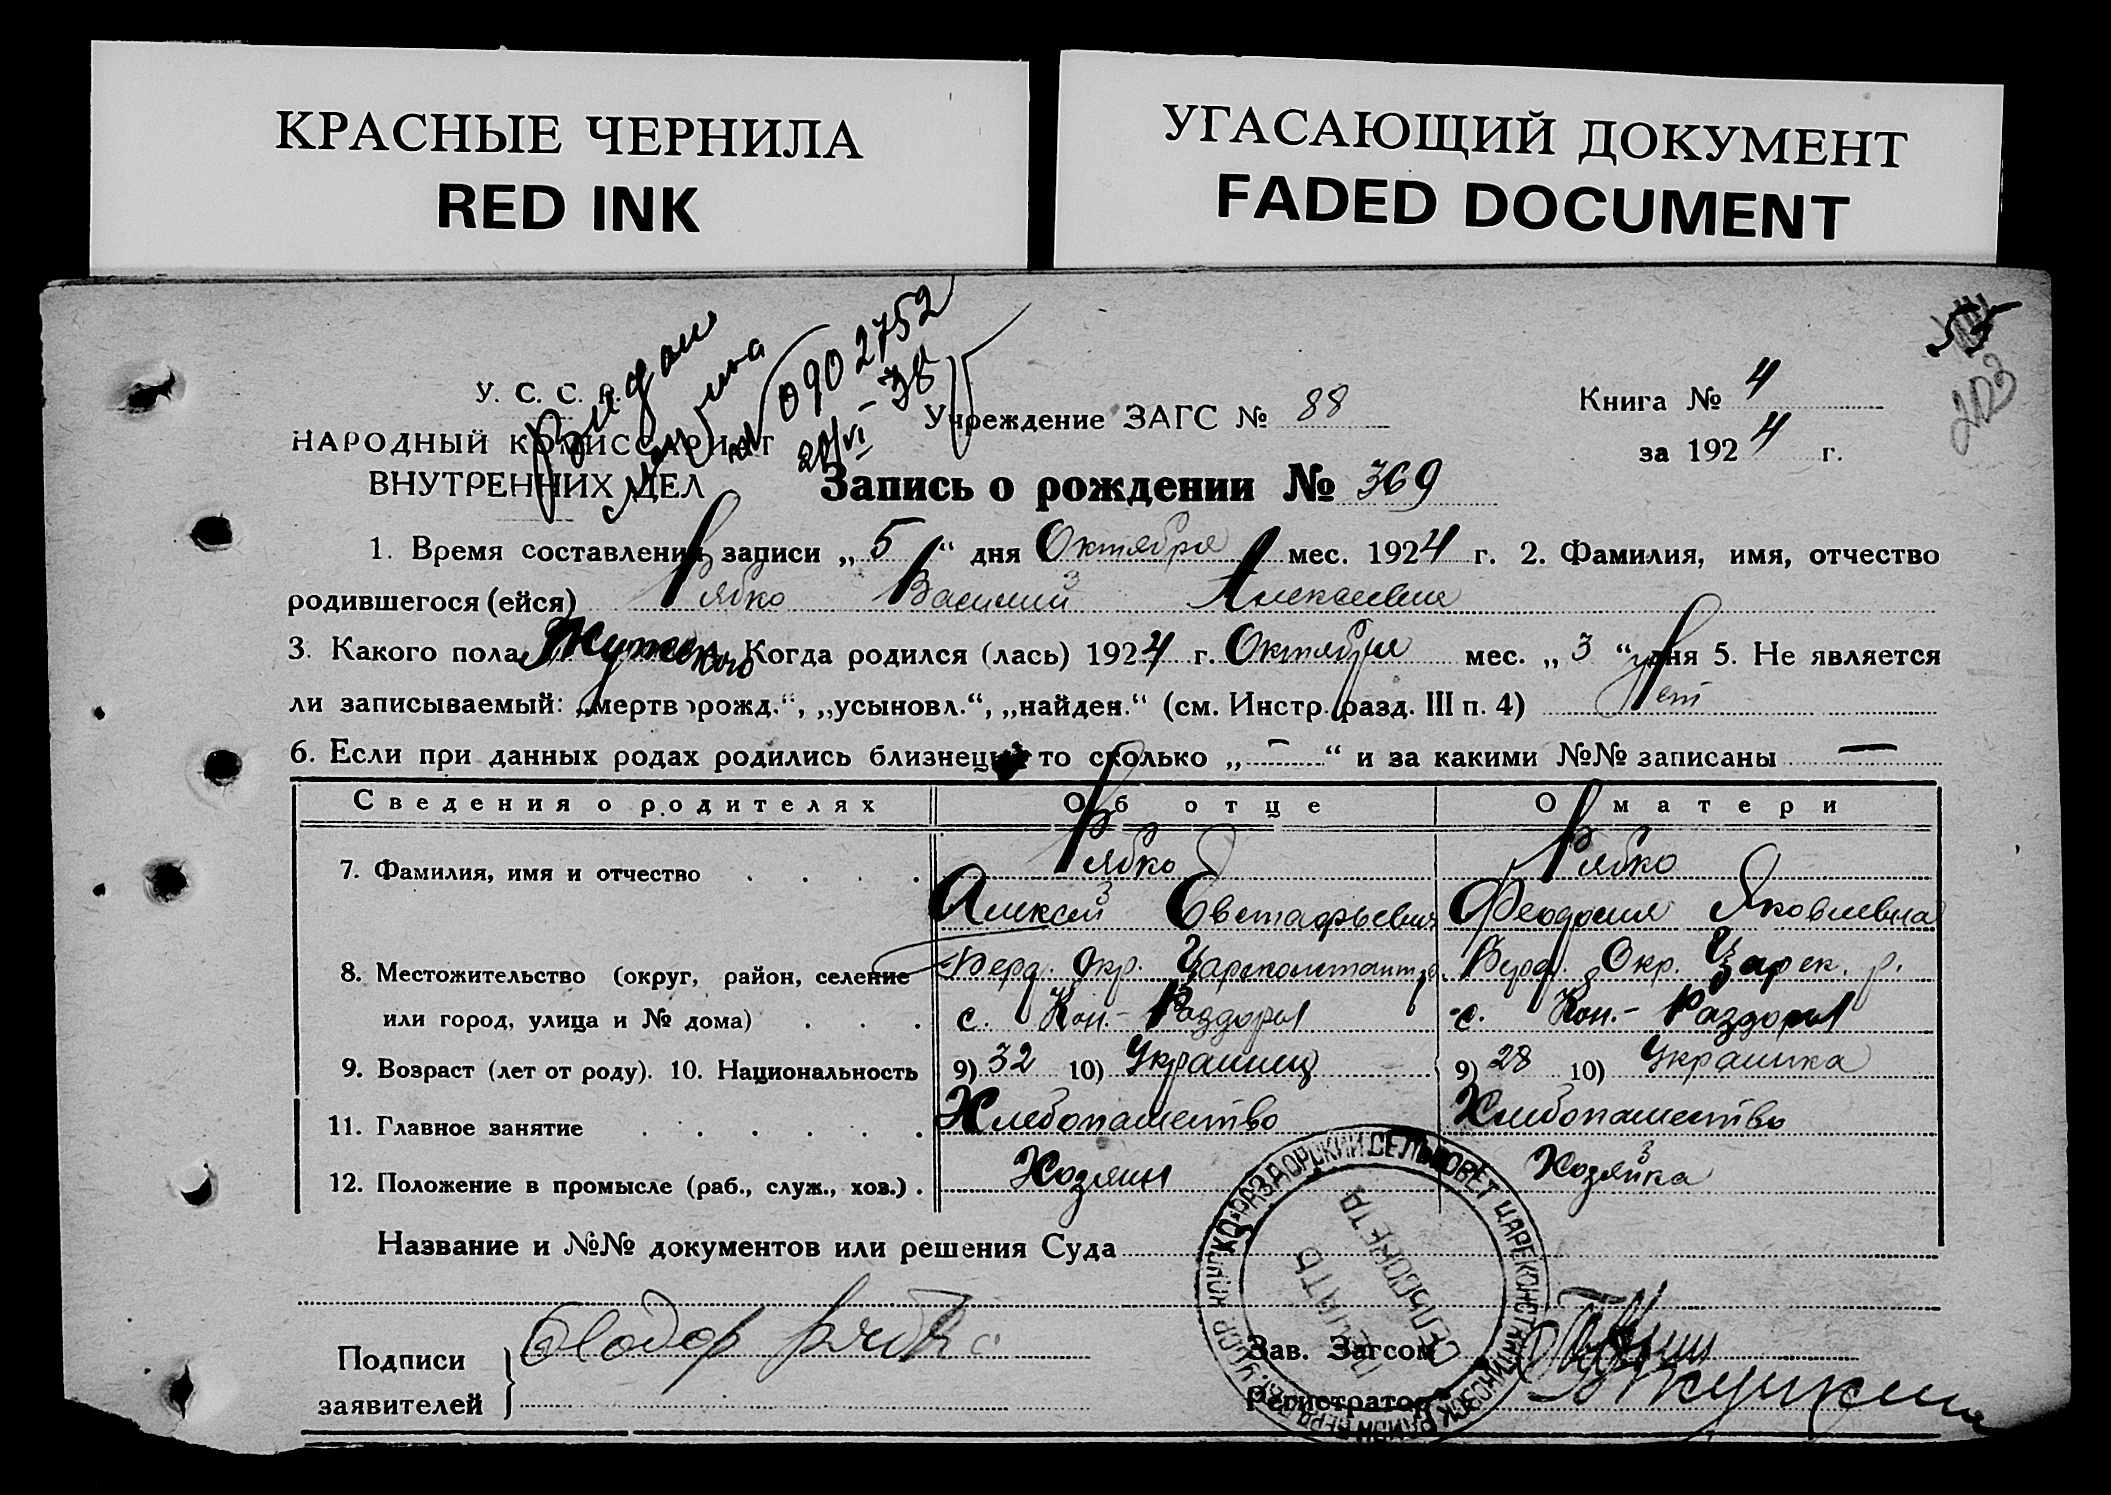 КРАСНЫЕ ЧЕРНИЛА
RED INK
УГАСАЮЩИЙ ДОКУМЕНТ
FADED DOCUMENT
203
Выдан
0902752
38
У. С. С. Р.
НАРОДНЫЙ КОМИССАРИАТ
ВНУТРЕННИХ ДЕЛ
Учреждение ЗАГС № 88
Книга № 4
за 1924 г.
Запись о рождении № 369
1. Время составления записи „5“ дня Октября мес. 1924 г. 2. Фамилия, имя, отчество
родившегося (ейся) Рябко Василий Алексеевич
3. Какого пола Мужского Когда родился (лась) 1924 г. Октября мес. „3“ дня 5. Не является
ли записываемый: „мертворожд.“, „усыновл.“, „найден.“ (см. Инстр. разд. III п. 4) нет
6. Если при данных родах родились близнецы то сколько „—“ и за какими №№ записаны —
Сведения о родителях Об отце О матери
7. Фамилия, имя и отчество . . . . Рябко Рябко
Алексей Евстафьевич Феодосия Яковлевна
8. Местожительство (округ, район, селение Берд. Окр. Цареконстант. р. Берд. Окр. Царек. р.
или город, улица и № дома) . . . с. Кон.-Раздоры с. Кон.-Раздоры
9. Возраст (лет от роду). 10. Национальность 9) 32 10) Украинец 9) 28 10) Украинка
11. Главное занятие . . . . . . Хлебопашество Хлебопашество
12. Положение в промысле (раб., служ., хоз.) . Хозяин Хозяйка
Название и №№ документов или решения Суда
Подписи
заявителей
Рябко
Зав. Загсом
Регистратор
РАЗДОРСКИЙ СЕЛЬСОВЕТ ЦАРЕКОНСТАНТИНОВСК
УССР
ПЕЧАТЬ
СЕЛЬСОВЕТА